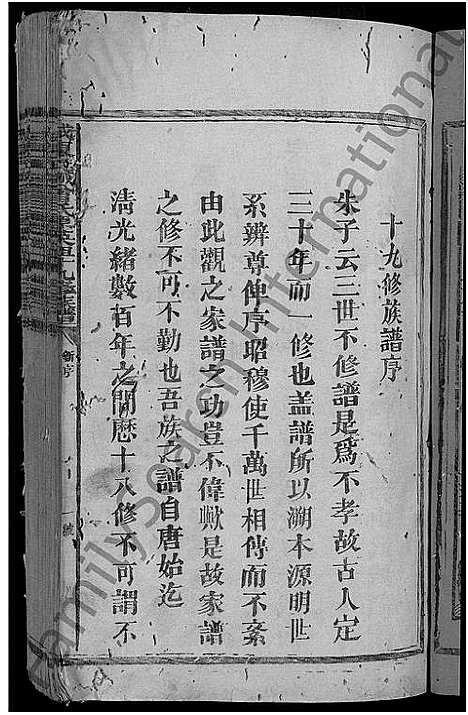 十九修族譜序
朱子云三世不修譜是爲不孝故古人定
三十年而一修也盖譜所以溯本源明世
系辨尊伸序昭穆使千萬世相傳而不紊
由此觀之家譜之功豈不偉歟是故家譜
之修不可不勤也吾族之譜自唐始迄
淸光緒數百年之間歷十八修不可謂不
新序
FamilySearch International